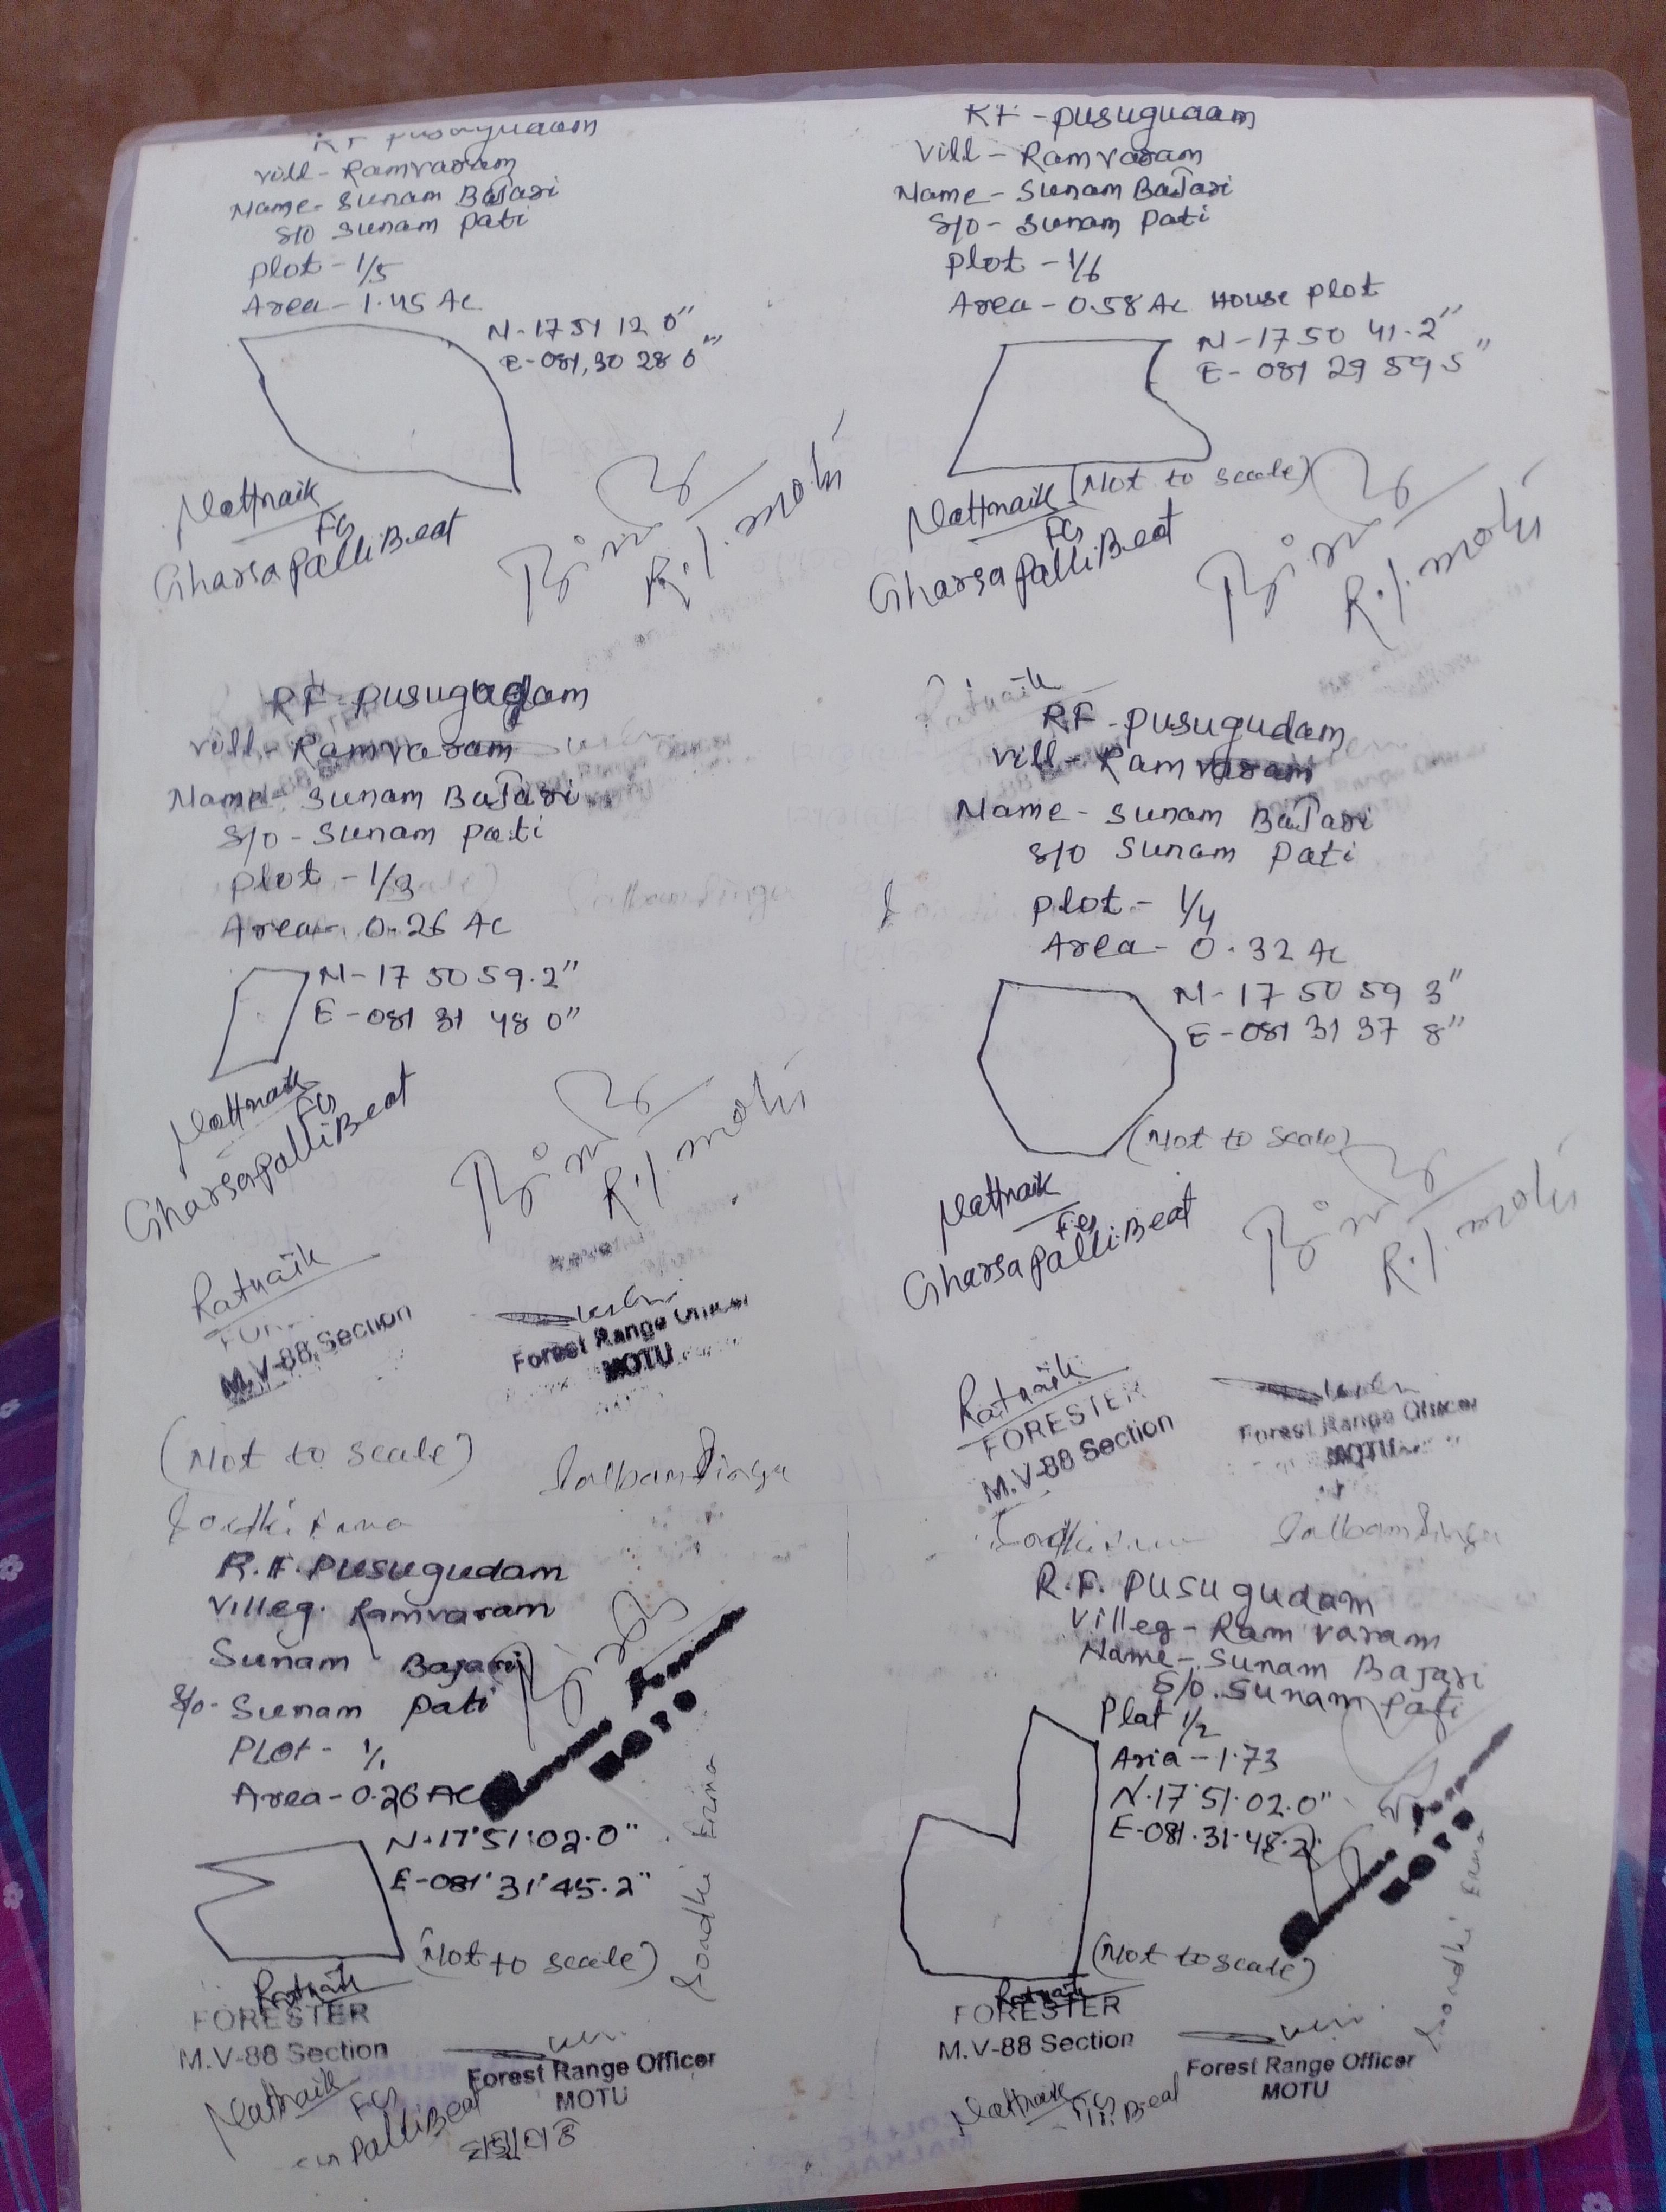 RF pusugudam
vill - Ramvaram
Name - Sunam BaJari
S/o Sunam pati
plot - 1/5
Area - 1.45 Ac
N - 17 51 12 0"
E - 081, 30 28 0"
Nattnaik
FG
Gharsapalli Beat
R.I. motu
RF - pusugudam
Vill - Ramvaram
Name - Sunam BaJari
S/o - Sunam Pati
plot - 1/6
Area - 0.58 Ac House plot
N - 17 50 41.2"
E - 081 29 59 5"
(Not to scale)
Nattnaik
FG
Gharsapalli Beat
R.I. motu
RF - pusugudam
vill - Ramvaram
Name - Sunam BaJari
S/o - Sunam pati
plot - 1/3
Area - 0.26 Ac
N - 17 50 59.2"
E - 081 31 48 0"
Nattnaik
FG
Gharsapalli Beat
R.I. motu
Ratnaik
M.V-88 Section
Forest Range Officer
MOTU
(Not to scale)
Ratnaik
RF - pusugudam
vill - Ramvaram
Name - Sunam BaJari
S/o Sunam Pati
plot - 1/4
Area - 0.32 Ac
N - 17 50 59 3"
E - 081 31 37 8"
(Not to scale)
Nattnaik
FG
Gharsapalli Beat
R.I. motu
Ratnaik
FORESTER
M.V-88 Section
Forest Range Officer
MOTU
R.F. Pusugudam
Villeg. Ramvaram
Sunam Bajari
S/o - Sunam pati
PLOT - 1/1
Area - 0.26 Ac
N-17°51'02.0"
E-081°31'45.2"
(Not to scale)
Ratnaik
FORESTER
M.V-88 Section
Forest Range Officer
MOTU
Nattnaik
FG
palli Beat
R.F. PUSUgudam
Villeg - Ram varam
Name - Sunam Bajari
S/o. Sunam pati
Plat 1/2
Aria - 1.73
N.17°51.02.0"
E-081.31.45.2"
(Not to scale)
Ratnaik
FORESTER
M.V-88 Section
Forest Range Officer
MOTU
Nattnaik
Beat